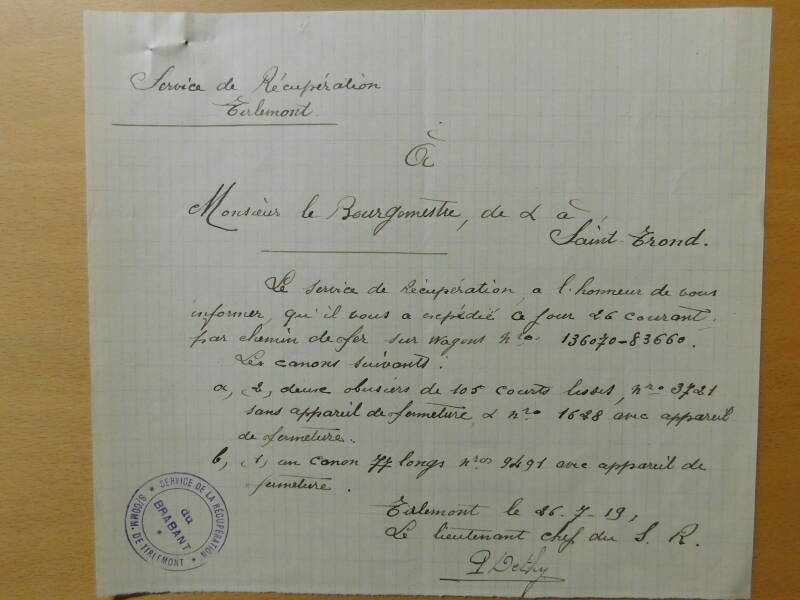 Service de Récupération
Tirlemont
À
Monsieur le Bourgmestre, de & à
Saint-Trond.
Le service de récupération, a l'honneur de vous
informer, qu'il vous a expédié ce jour 26 courant,
par chemin de fer sur wagons nros 136070-83660.
Les canons suivants :
a, 2, deux obusiers de 105 courts lisses, nro 3721
sans appareil de fermeture, & nro 1628 avec appareil
de fermeture.
b, 1, un canon 77 longs nros 9491 avec appareil de
fermeture.
Tirlemont le 26-7-19,
Le lieutenant chef du S. R.
P Dethy
* SERVICE DE LA RÉCUPÉRATION *
S/COMM. DE TIRLEMONT
du
BRABANT